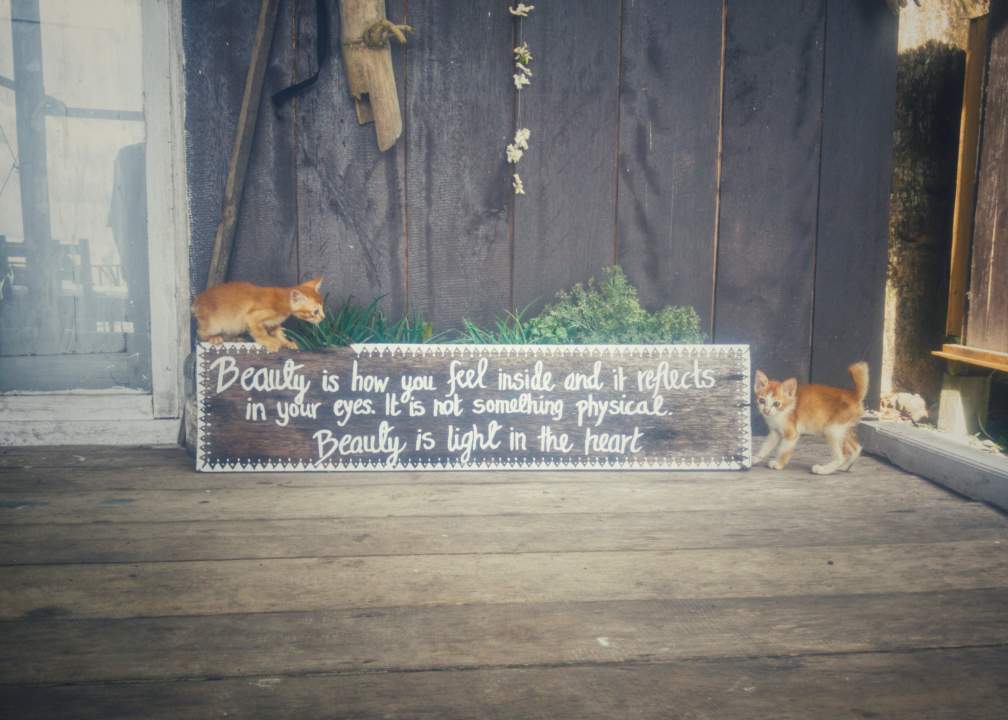 Beauty is how you feel inside and it reflects
in your eyes. It is not something physical.
Beauty is light in the heart